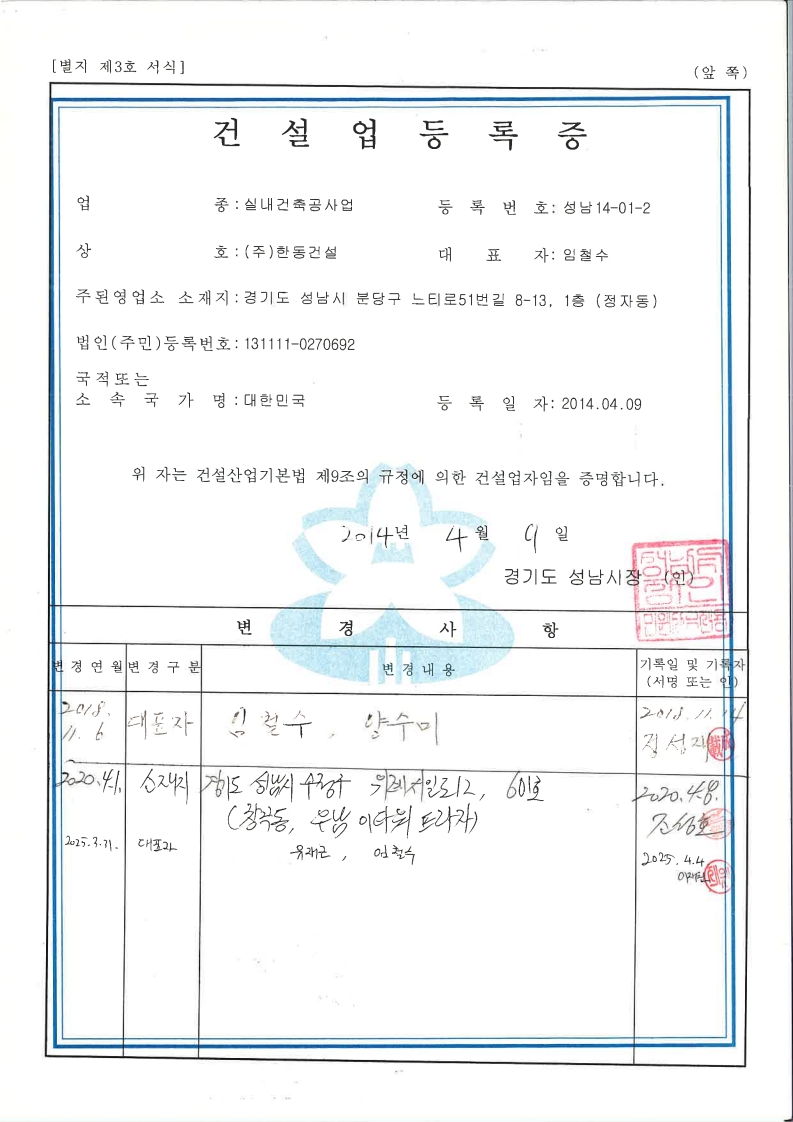 [별지 제3호 서식]
(앞 쪽)
건 설 업 등 록 증
업 종 : 실내건축공사업 등 록 번 호 : 성남14-01-2
상 호 : (주)한동건설 대 표 자 : 임철수
주된영업소 소재지 : 경기도 성남시 분당구 느티로51번길 8-13, 1층 (정자동)
법인(주민)등록번호 : 131111-0270692
국적또는
소 속 국 가 명 : 대한민국 등 록 일 자 : 2014.04.09
위 자는 건설산업기본법 제9조의 규정에 의한 건설업자임을 증명합니다.
2014년 4월 9일
경기도 성남시장 (인)
변 경 사 항
변경연월 변경구분 변경내용 기록일 및 기록자
(서명 또는 인)
2018. 11. 6 대표자 임철수, 양수미 2018. 11. 14
정성
2020.4.1. 소재지 경기도 성남시 수정구 위례서일로12, 601호 2020.4.8.
(창곡동, 우남 이타워 프라자)
2025.3.31. 대표자 유재근, 임철수 2025.4.4